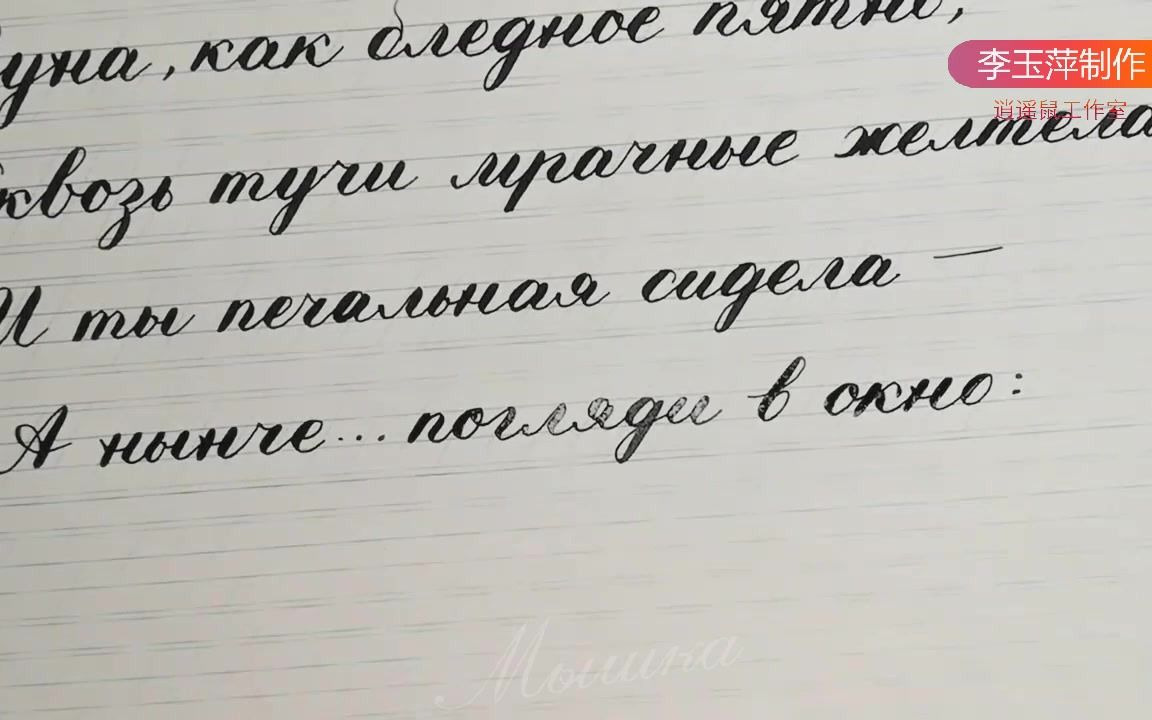 уна, как бледное пятно,
李玉萍制作
逍遥鼠工作室
квозь тучи мрачные желтела
И ты печальная сидела —
А нынче... погляди в окно:
Мышка